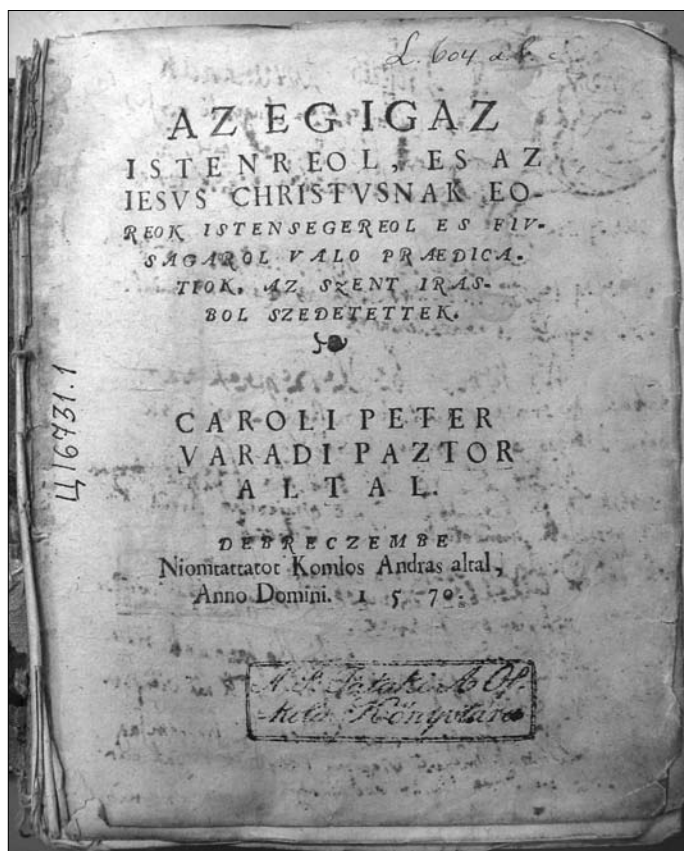 L. 604 a. b. c.
AZ EG IGAZ
ISTENREOL, ES AZ
IESVS CHRISTVSNAK EO-
REOK ISTENSEGEREOL ES FIV-
SAGAROL VALO PRAEDICA-
TIOK, AZ SZENT IRAS-
BOL SZEDETETTEK.
CAROLI PETER
VARADI PAZTOR
ALTAL.
DEBRECZEMBE
Niomtattatot Komlos Andras altal,
Anno Domini. 1 5 70.
Ц16731.1
A S. Pataki A Os-
kola Könyvtára